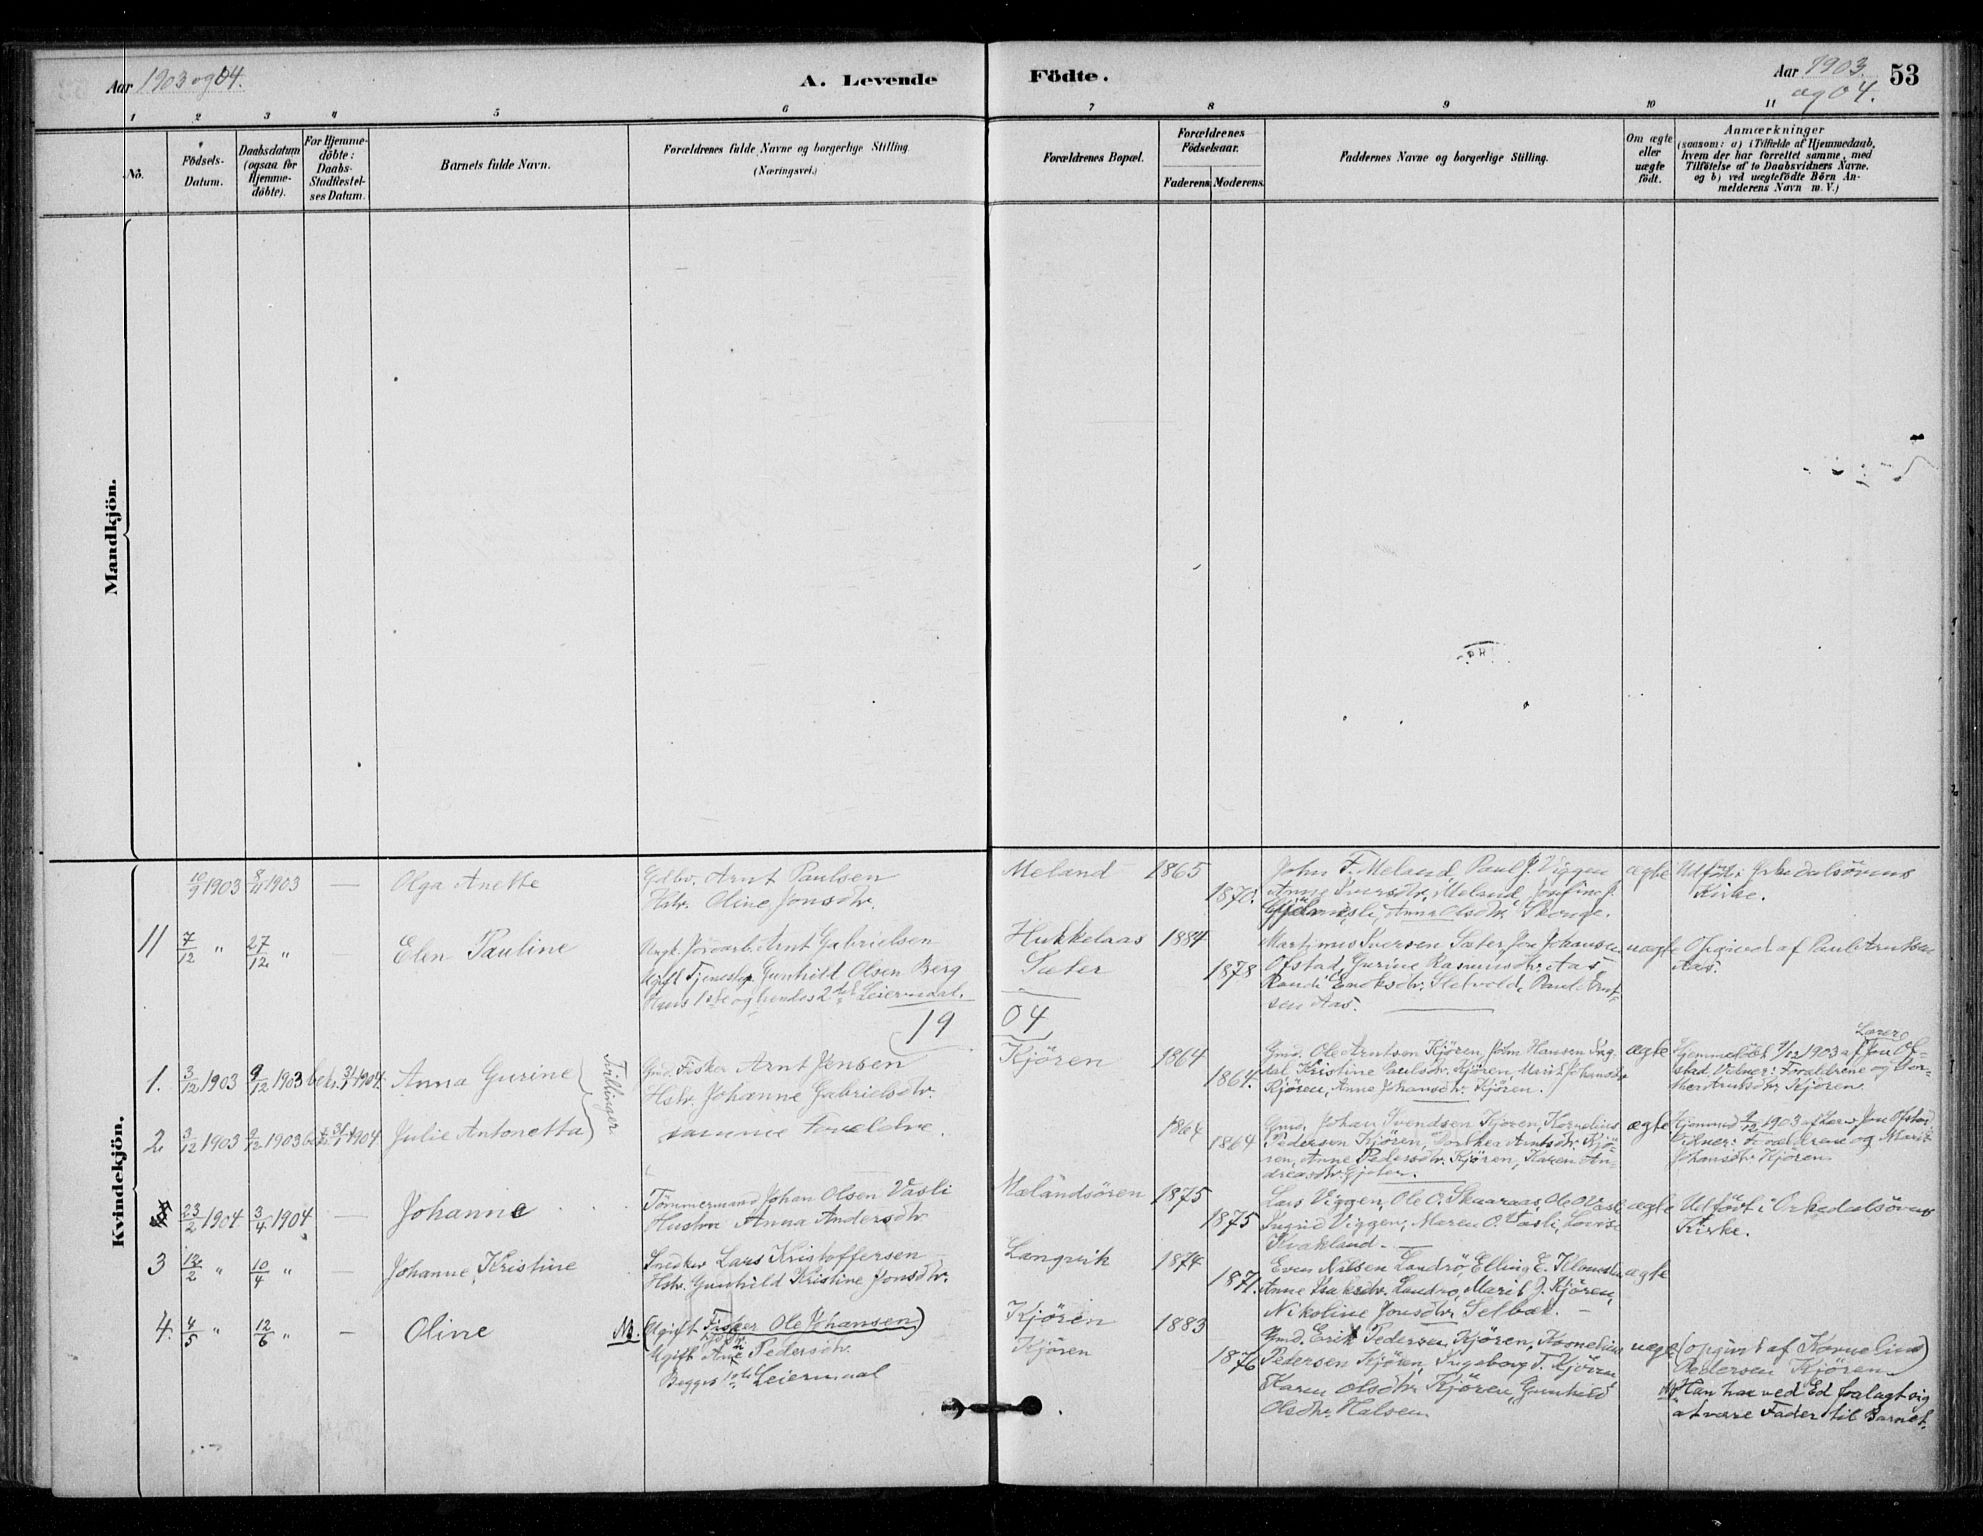 Aar 1903 og 04.
A. Levende
Födte.
Aar 1903
og 04.
53
1 2 3 4 5 6 7 8 9 10 11
No.
Födsels-
Datum.
Daabsdatum
(ogsaa for
Hjemme-
döbte).
For Hjemme-
döbte:
Daabs-
Stadfæstel-
ses Datum.
Barnets fulde Navn.
Forældrenes fulde Navne og borgerlige Stilling
(Næringsvei.)
Forældrenes Bopæl.
Forældrenes
Födselsaar.
Faderens Moderens.
Faddernes Navne og borgerlige Stilling.
Om ægte
eller
uægte
födt.
Anmærkninger
(saasom: a) i Tilfælde af Hjemmedaab,
hvem der har forrettet samme, med
Tilföielse af to Daabsvidners Navne.
og b) ved uægtefödte Börn An-
melderens Navn m. V.)
Mandkjön.
Kvindekjön.
10/9 1903 8/11 1903 — Olga Anette
Gdbr. Arnt Paulsen
Hstr. Oline Jonsdtr.
Meland 1865
1870.
John F. Meland, Paul J. Viggen
Anne Iversdtr. Meland, Josefine J.
Anna Olsdtr. Skorge.
ægte
Udföbt i Orkedalsörens
Kirke.
11 7/12 " 27/12 " — Elen Pauline
Ungk. Jordarb. Arnt Gabrielsen
Ugift Tjenestep. Gunhild Olsen Berg
Hans 1ste og hendes 2det Leiermaal.
Hukkelaas 1884
Sæter 1878
Martinus Iversen Sæter, Jon Johansen
Ofstad, Gurine Rasmusdtr. Aas,
Randi Enoksdtr. Stelvold, Paul Arnt-
sen Aas.
uægte
Opgivet af Paul Arntsen
Aas.
19 04
1. 3/12 1903 9/12 1903 bekr. 31/1 1904. Anna Gurine
Tvillinger.
Gmd. Fisker Arnt Jensen
Hstr. Johanne Gabrielsdtr.
Kjören 1864
1864.
Gmd. Ole Arntsen Kjören, John Hansen Ing-
dal, Kristine Paulsdtr. Kjören, Marit Johansdtr
Kjören, Anne Johansdtr. Kjören.
ægte
Lærer
Hjemmedöbt 9/12 1903 af Jon Of-
stad. Vidner: Forældrene og Dor-
thea Arntsdtr. Kjören.
2. 3/12 1903 9/12 1903 bekr. 31/1 1904 Julie Antonetta
samme Forældre.
1864
1864
Gmd. Johan Svendsen Kjören, Kornelius
Pedersen Kjören, Dorthea Arntsdtr. Kjö-
ren, Anne Pedersdtr. Kjören, Karen An-
dreasdtr. Gjölen.
ægte.
Hjemmd 9/12 1903 af Lærer Jon Ofstad.
Vidner: Forældrene og Marit
Johansdtr. Kjören.
23/2 1904 3/4 1904 — Johanne
Tömmermand Johan Olsen Vasli
Hustru Anna Andersdtr.
Mælandsören 1875
1875
Lars Viggen, Ole O. Skaaraas, Ole O. Vasli
Ingrid Viggen, Maren O. Vasli, Lovise
Kvakland. —
ægte
Udföbt i Orkedalsörens
Kirke.
3 12/2 " 10/4 " — Johanne Kristine
Snedker Lars Kristoffersen
Hstr. Gunhild Kristine Jonsdtr.
Langvik 1874
1871.
Even Nilsen Landrö, Elling E.
Anne Isaksdtr. Landrö, Marit J. Kjören,
Nikoline Jonsdtr. Selbæk. —
ægte
4. 4/5 " 12/6 " — Oline
NB. (Ugift Fisker Ole Johansen)
Ugift Ane Pedersdtr.
Begges 1ste Leiermaal
Kjören 1883
Kjören 1876
Gmd. Erik Pedersen Kjören, Kornelius
Pedersen Kjören, Ingeborg T. Kjören,
Karen Olsdtr. Kjören, Gunhild
Olsdtr. Halsen.
uægte
(opgivet af Kornelius)
Pedersen Kjören.
NB. Han har ved Ed fralagt sig
at være Fader til Barnet.